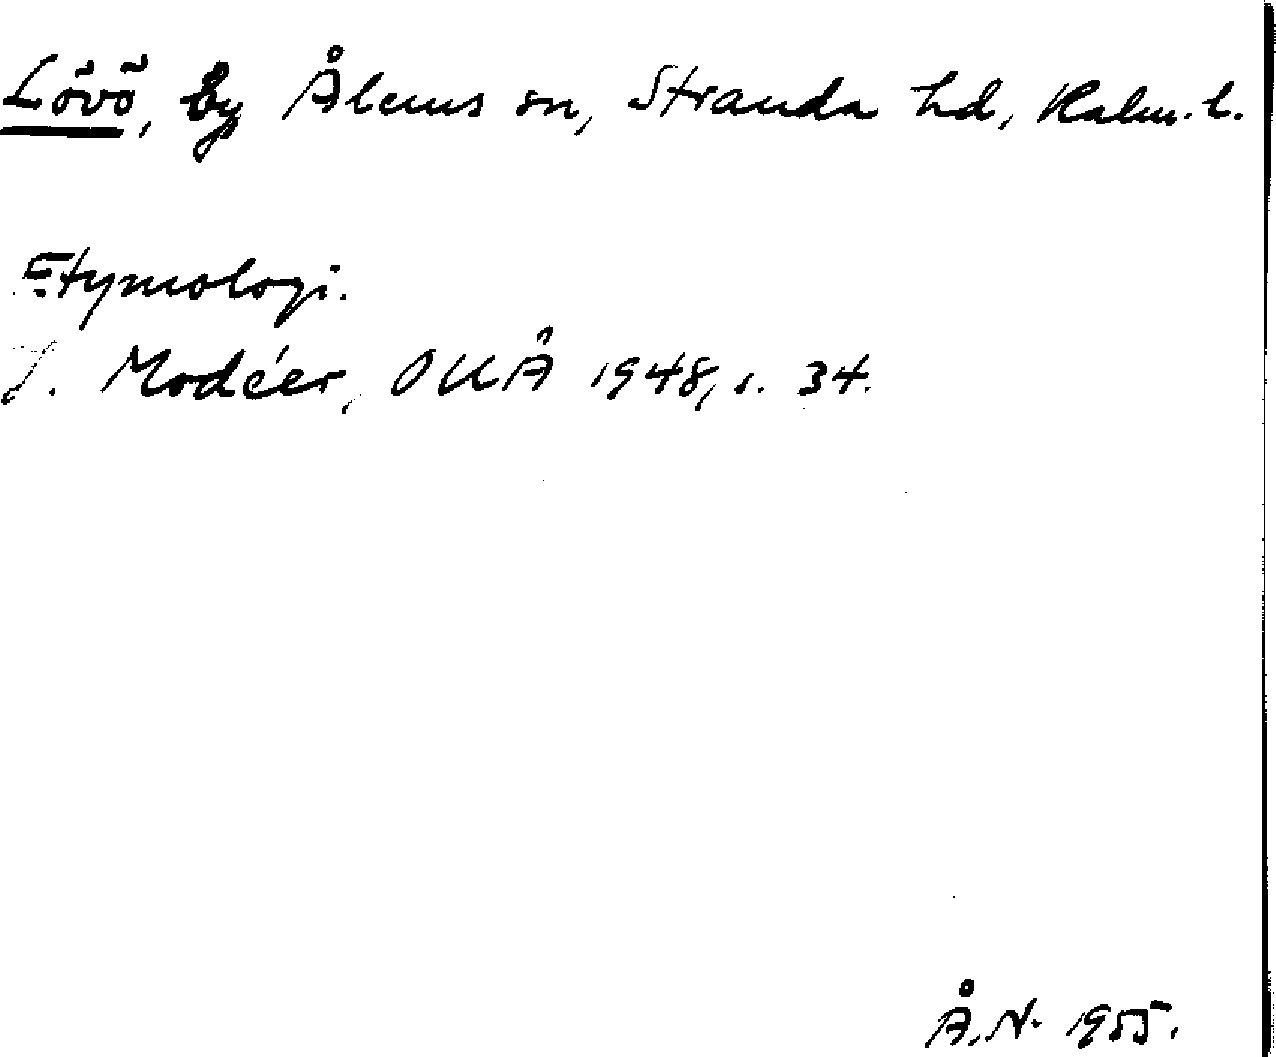 Lövö, by Ålems sn, Stranda hd, Kalm. l.
Etymologi.
I. Modéer, OUÅ 1948, s. 34.
Å.N. 1955.